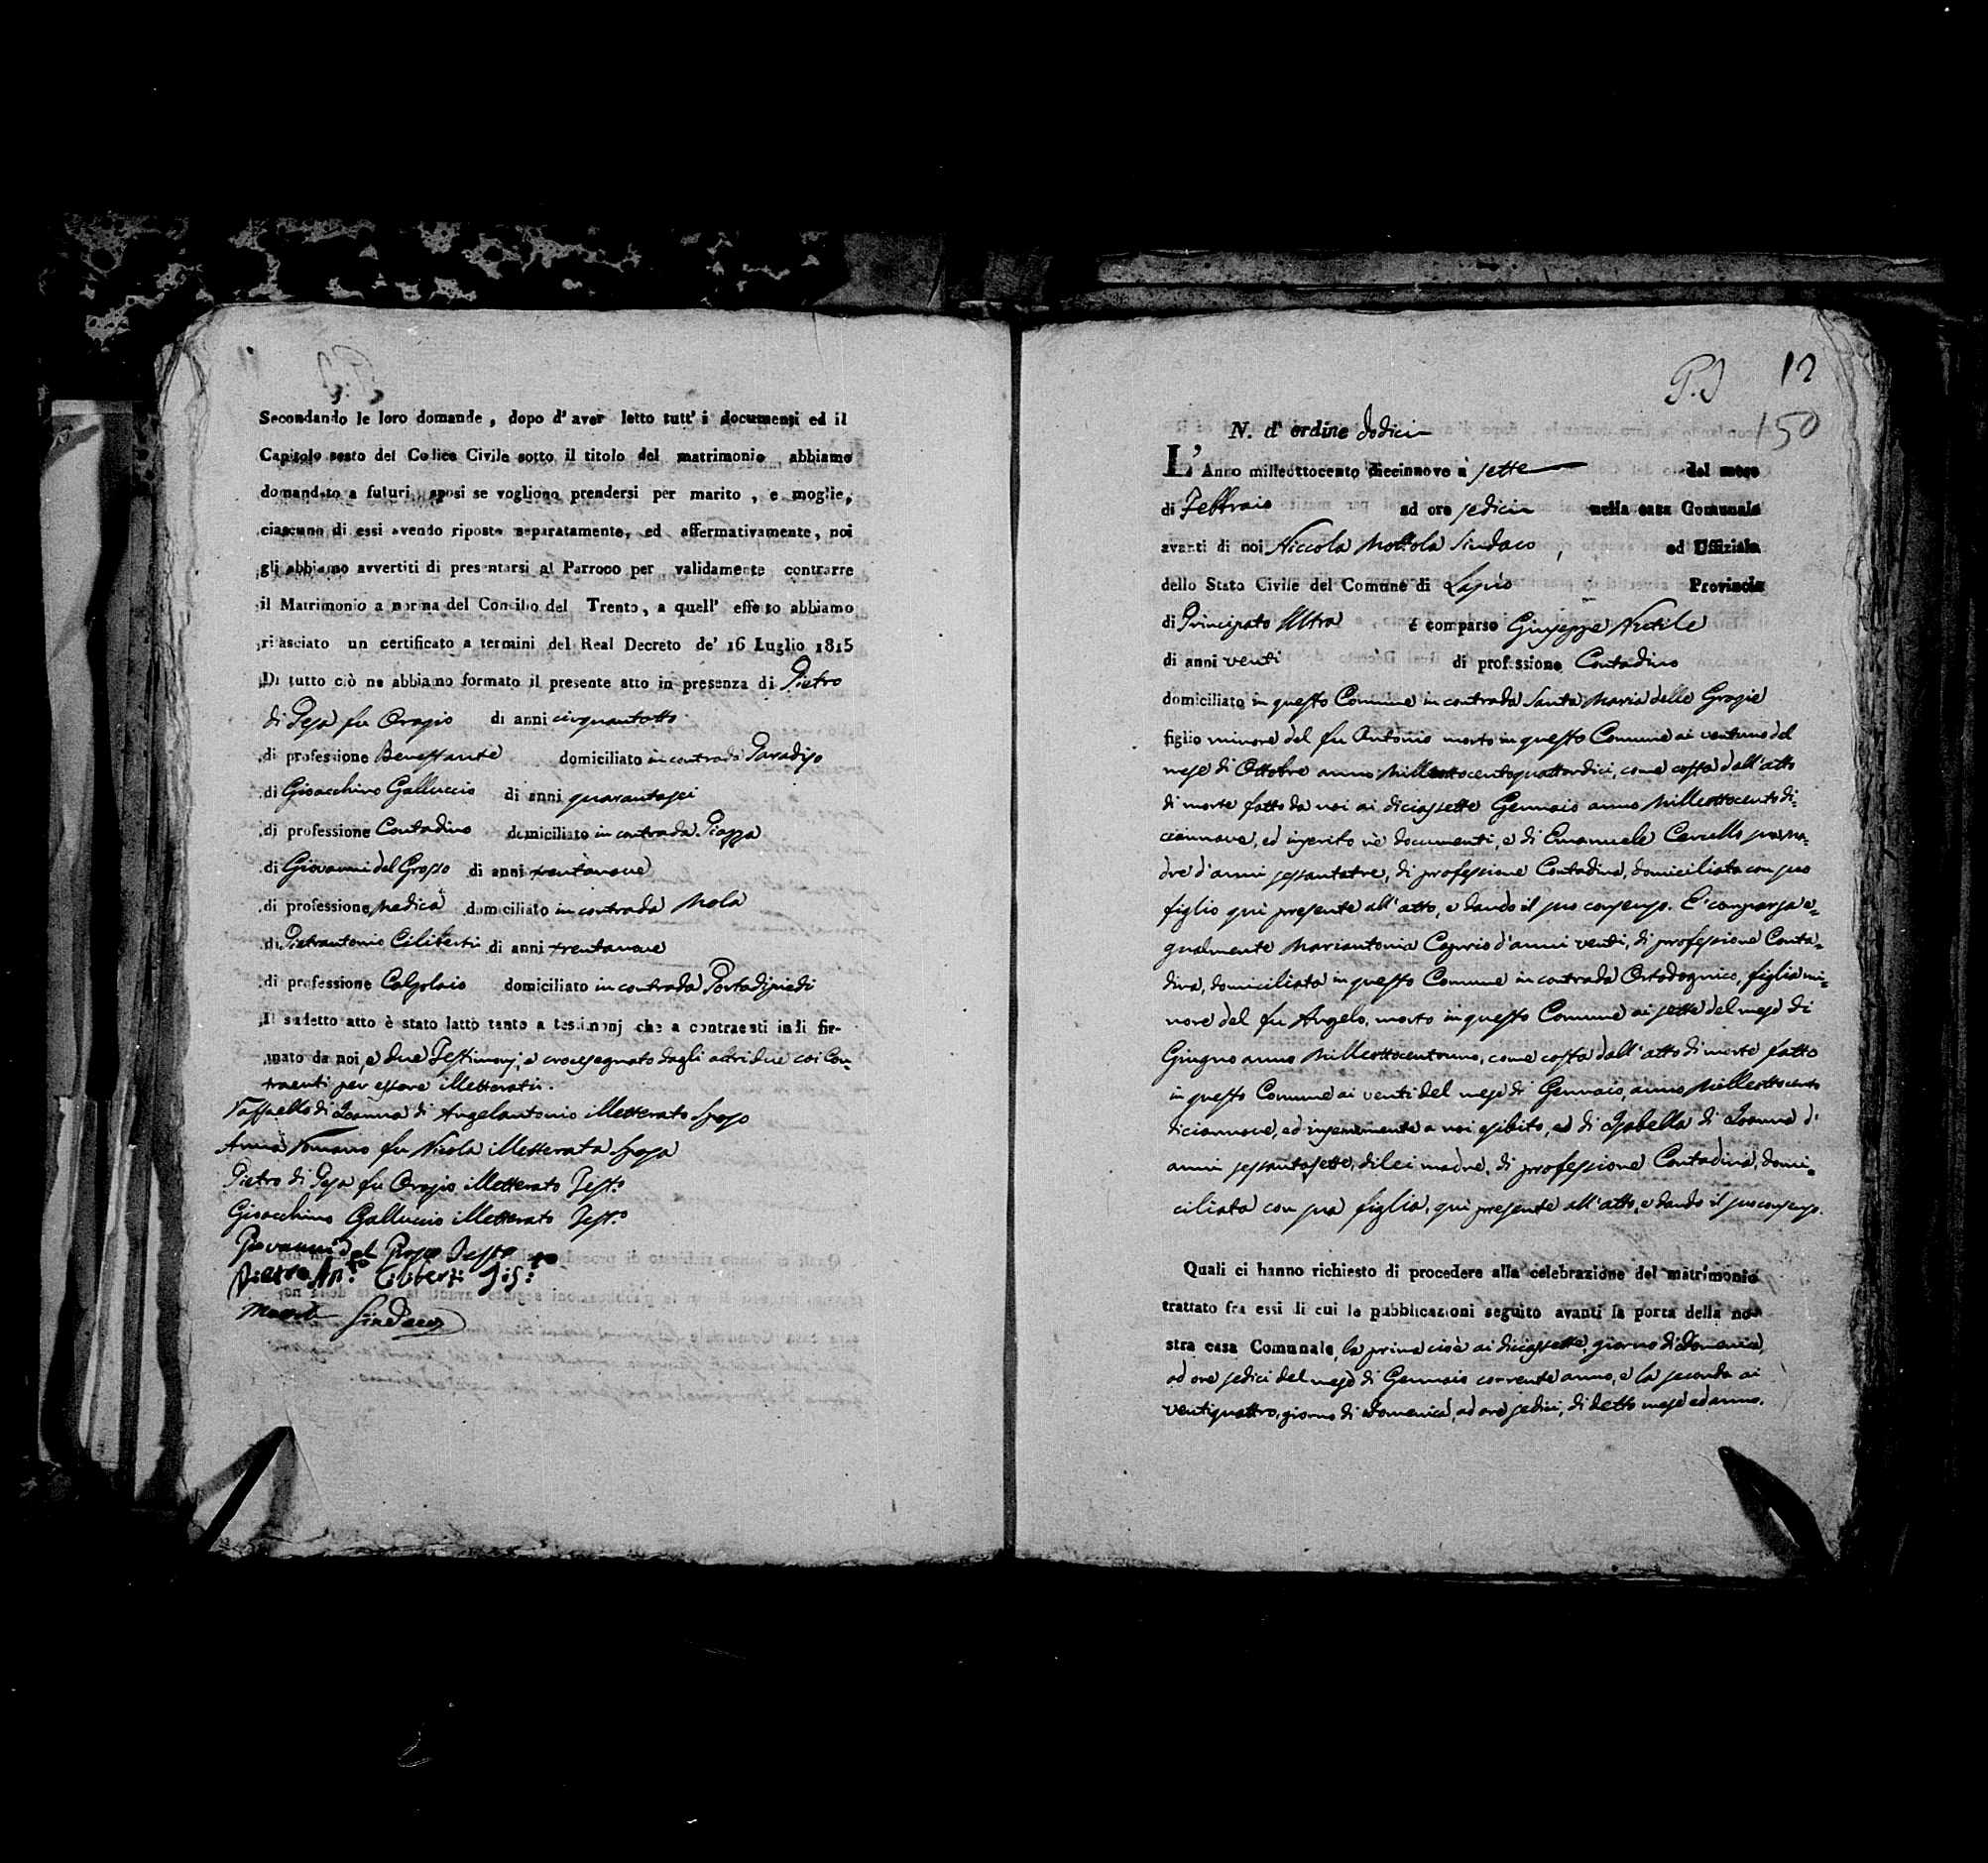 Secondando le loro domande, dopo d'aver letto tutt'i documenti ed il
Capitolo sesto del Codice Civile sotto il titolo del matrimonio abbiamo
domandato a futuri sposi se vogliono prendersi per marito, e moglie,
ciascuno di essi avendo riposto separatamente, ed affermativamente, noi
gli abbiamo avvertiti di presentarsi al Parroco per validamente contrarre
il Matrimonio a norma del Concilio del Trento, a quell' effetto abbiamo
rilasciato un certificato a termini del Real Decreto de' 16 Luglio 1815
Di tutto ciò ne abbiamo formato il presente atto in presenza di Pietro
di Pesa fu Orazio di anni cinquantotto
di professione Benestante domiciliato in contrada Paradiso
di Gioacchino Galluccio di anni quarantasei
di professione Contadino domiciliato in contrada Piazza
di Giovanni del Grosso di anni trentanove
di professione Medico domiciliato in contrada Mola
di Pietrantonio Ciliberti di anni trentanove
di professione Calzolaio domiciliato in contrada Portadipiedi
Il sudetto atto è stato latto tanto a testimonj che a contraenti indi fir-
mato da noi, e due Testimonj, e crocesegnato dagli altri due coi Con-
traenti per essere illetterati.
Raffaello di Ioanna di Angelantonio illetterato Sposo
Anna Romano fu Nicola illetterata Sposa
Pietro di Pesa fu Orazio illetterato Test.o
Gioacchino Galluccio illetterato Test.o
Giovanni del Grosso Test.o
Pietro An.to Ciliberti Tes.to
Sindaco
12
150
N. d'ordine dodici
L'Anno milleottocento diecinnove a sette del mese
di Febbraio ad ore sedici nella casa Comunale
avanti di noi Niccola Mottola Sindaco, ed Uffiziale
dello Stato Civile del Comune di Lapio Provincia
di Principato Ultra è comparso Giuseppe Nutile
di anni venti di professione Contadino
domiciliato in questo Comune in contrada Santa Maria delle Grazie
figlio minore del fu Antonio morto in questo Comune ai ventuno del
mese di Ottobre anno Millottocentoquattordici, come costa dall'atto
di morte fatto da noi ai diciassette Gennaio anno Millottocentodi-
ciannove, ed inserito nè documenti, e di Emanuele Carullo sua ma-
dre d'anni sessantatre, di professione Contadina, domiciliata con suo
figlio qui presente all'atto, e dando il suo consenso. E' comparsa e-
gualmente Mariantonia Caprio d'anni venti, di professione Conta-
dina, domiciliata in questo Comune in contrada Ortodognico, figlia mi-
nore del fu Angelo, morto in questo Comune ai sette del mese di
Giugno anno Millottocentouno, come costa dall'atto di morte fatto
in questo Comune ai venti del mese di Gennaio, anno Millottocento
diciannove, ed a noi esibito, e di Isabella di Ioanna d'
anni sessantasette, di lei madre, di professione Contadina, domi-
ciliata con sua figlia, qui presente all'atto, e dando il suo consenso.
Quali ci hanno richiesto di procedere alla celebrazione del matrimonio
trattato fra essi di cui le pubblicazioni seguito avanti la porta della no-
stra casa Comunale, la prima cioè ai diciassette, giorno di Domenica,
ad ore sedici del mese di Gennaio corrente anno, e la seconda ai
ventiquattro, giorno di Domenica, ad ore sedici, di detto mese ed anno.